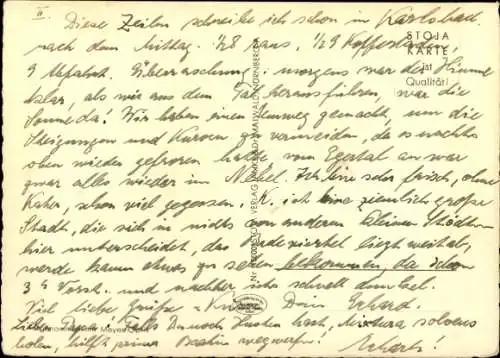 II
Diese Zeilen schreibe ich schon in Karlsbad
nach dem Mittag. 1/28 raus, 1/29 Kaffee
STOJA
KARTE
ist
Qualität!
9 Abfahrt. Überraschung: morgens war der Himmel
klar, als wir aus dem Tal herausfuhren, war die
Sonne da! Wir haben einen Umweg gemacht, um die
Steigungen und Kurven zu vermeiden, da es nachts
oben wieder gefroren hatte vom Egertal an war
zwar alles wieder im Nebel. Ich bin sehr frisch, ohne
Kater, schon viel gegessen. K. ist eine ziemlich große
Stadt, die sich in nichts von anderen kleinen Städten
hier unterscheidet, das Badeviertel liegt weitab,
werde kaum etwas zu sehen bekommen, da schon
3h Vorst. und nachher ist schnell dunkel.
Viel liebe Grüße + Dein Erhard.
Lieber Papa! Falls Du noch Husten hast, Mixtura solvens
holen, hilft prima Erhard!